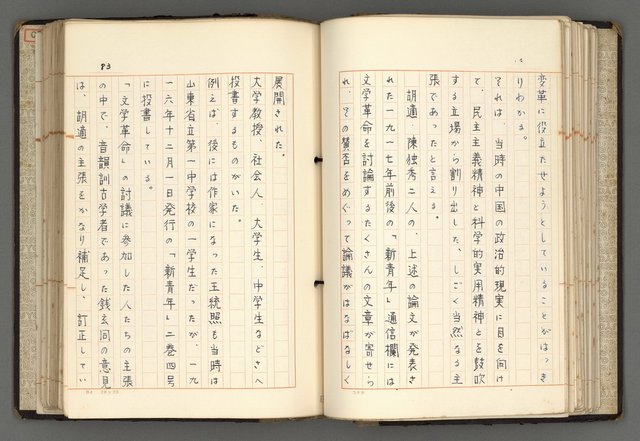 変革に役立たせようとしていることがはっき
りわかる。
それは、当時の中国の政治的現実に目を向け
て、民主主義精神と科学的実用精神とを鼓吹
する立場から割り出した、しごく当然なる主
張であったと言える。
胡適、陳独秀二人の、上述の論文が発表さ
れた一九一七年前後の「新青年」通信欄には
文学革命を討論するたくさんの文章が寄せら
れ、その賛否をめぐって論議がはなばなしく
83
展開された。
大学教授、社会人、大学生、中学生などさへ
投書するものがいた。
例えば、後には作家になった王統照も当時は
山東省立第一中学校の一学生だったが、一九
一六年十二月一日発行の「新青年」二巻四号
に投書している。
「文学革命」の討議に参加した人たちの主張
の中で、音韻訓古学者であった銭玄同の意見
は、胡適の主張をかなり補足し、訂正してい